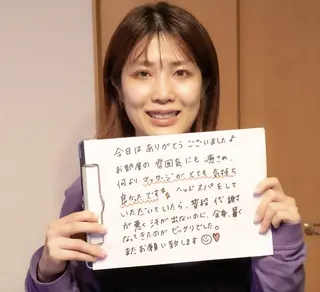 今日は ありがとう ございました♪
お部屋の 雰囲気にも 癒され、
何より マッサージが とても 気持ち
良かったです ヘッドスパをして
いただいていたら、普段 代謝
が悪く汗が出ないのに、全身 暑く
なってきたのが ビックリでした。
また お願い致します☺♡